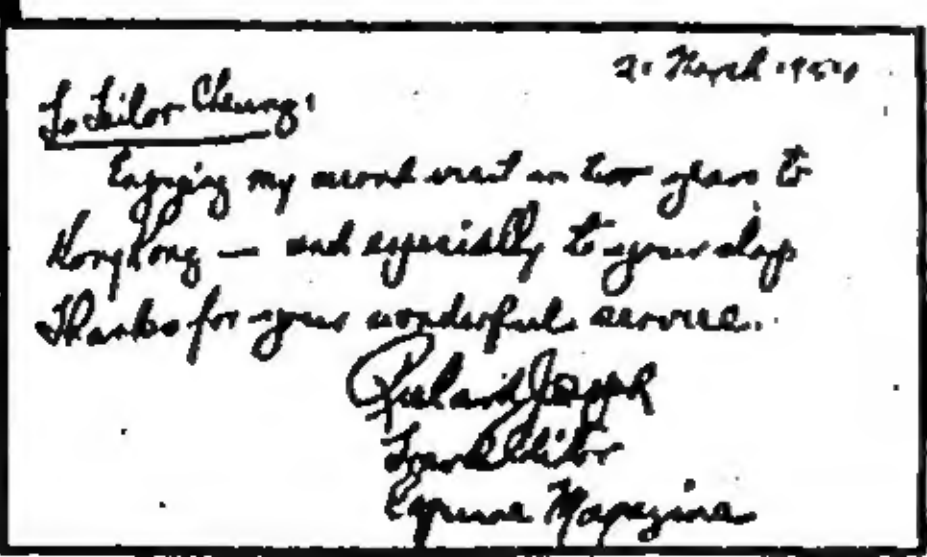 21 March 195
To Tailor Cheung:
Enjoying my second visit in two years to
Hong Kong — and especially to your shop
Thanks for your wonderful service.
Richard Joseph
Travel Editor
Esquire Magazine